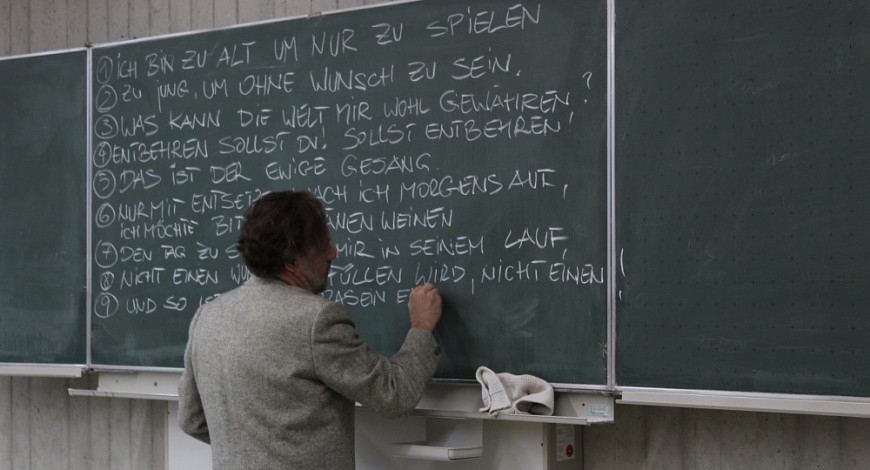 ① ICH BIN ZU ALT UM NUR ZU SPIELEN
② ZU JUNG, UM OHNE WUNSCH ZU SEIN.
③ WAS KANN DIE WELT MIR WOHL GEWÄHREN?
④ ENTBEHREN SOLLST DU! SOLLST ENTBEHREN!
⑤ DAS IST DER EWIGE GESANG.
⑥ NUR MIT ENTSETZE ACH ICH MORGENS AUF,
ICH MÖCHTE BIT ÄNEN WEINEN
⑦ DEN TAG ZU S MIR IN SEINEM LAUF,
⑧ NICHT EINEN WU FÜLLEN WIRD, NICHT EINEN
⑨ UND SO IS DASEIN E